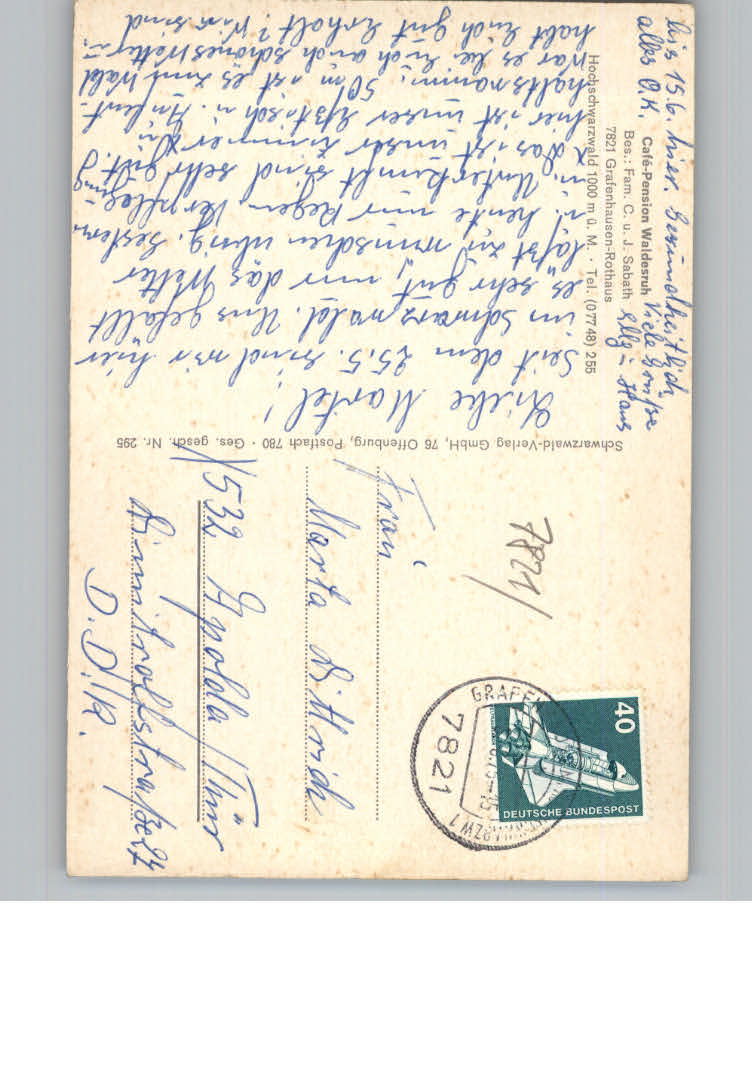 Liebe Martel!
Seit dem 25.5. sind wir hier
im Schwarzwald. Uns gefällt
es sehr gut, nur das Wetter
läßt zu wünschen übrig. Gestern
u. heute nur Regen. Verpfleg=
ung
u. Unterkunft sind sehr gut.
x das ist unser Zimmer
hier ist unser Eßtisch u. Aufent-
haltsraum. 50 m ist es zum Wald
War es bei Euch auch schönes Wetter u.
habt Euch gut erholt? Wir sind
bis 15.6. hier. Gesundheitlich
alles O.K. Viele Grüße
Elly u. Hans
Café-Pension Waldesruh
Bes.: Fam. C. u. J. Sabath
7821 Grafenhausen-Rothaus
Hochschwarzwald 1000 m ü. M. · Tel. (07748) 255
Schwarzwald-Verlag GmbH, 76 Offenburg, Postfach 780 · Ges. gesch. Nr. 295
40
DEUTSCHE BUNDESPOST
7821
7821/
Frau
Marta Dittrich
532 Apolda/Thür
Dimitroffstraße 27
D.D.R.